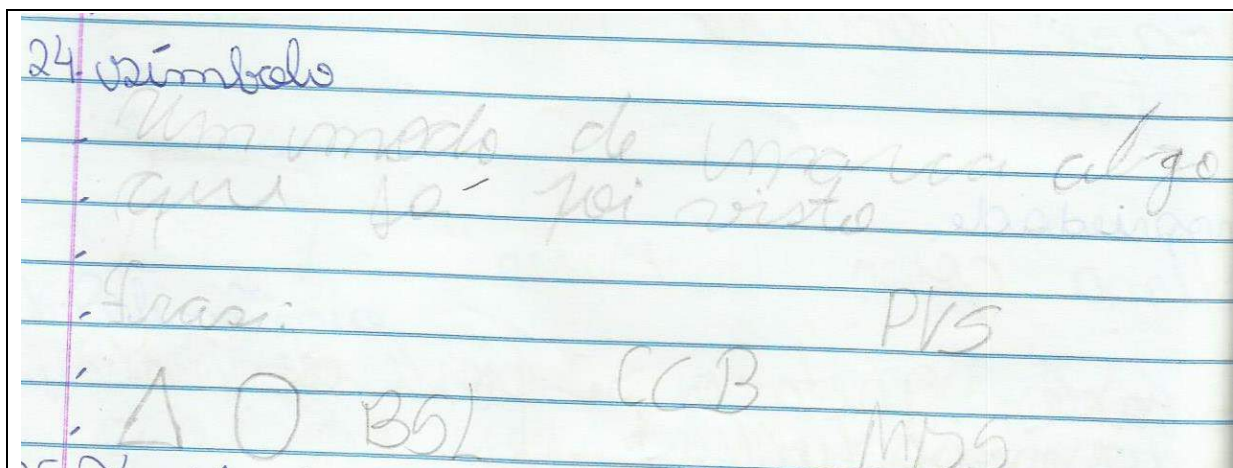 24. símbolo
Um modo de marca algo
que já foi visto
Frase:
PVS
Δ O BSL CCB